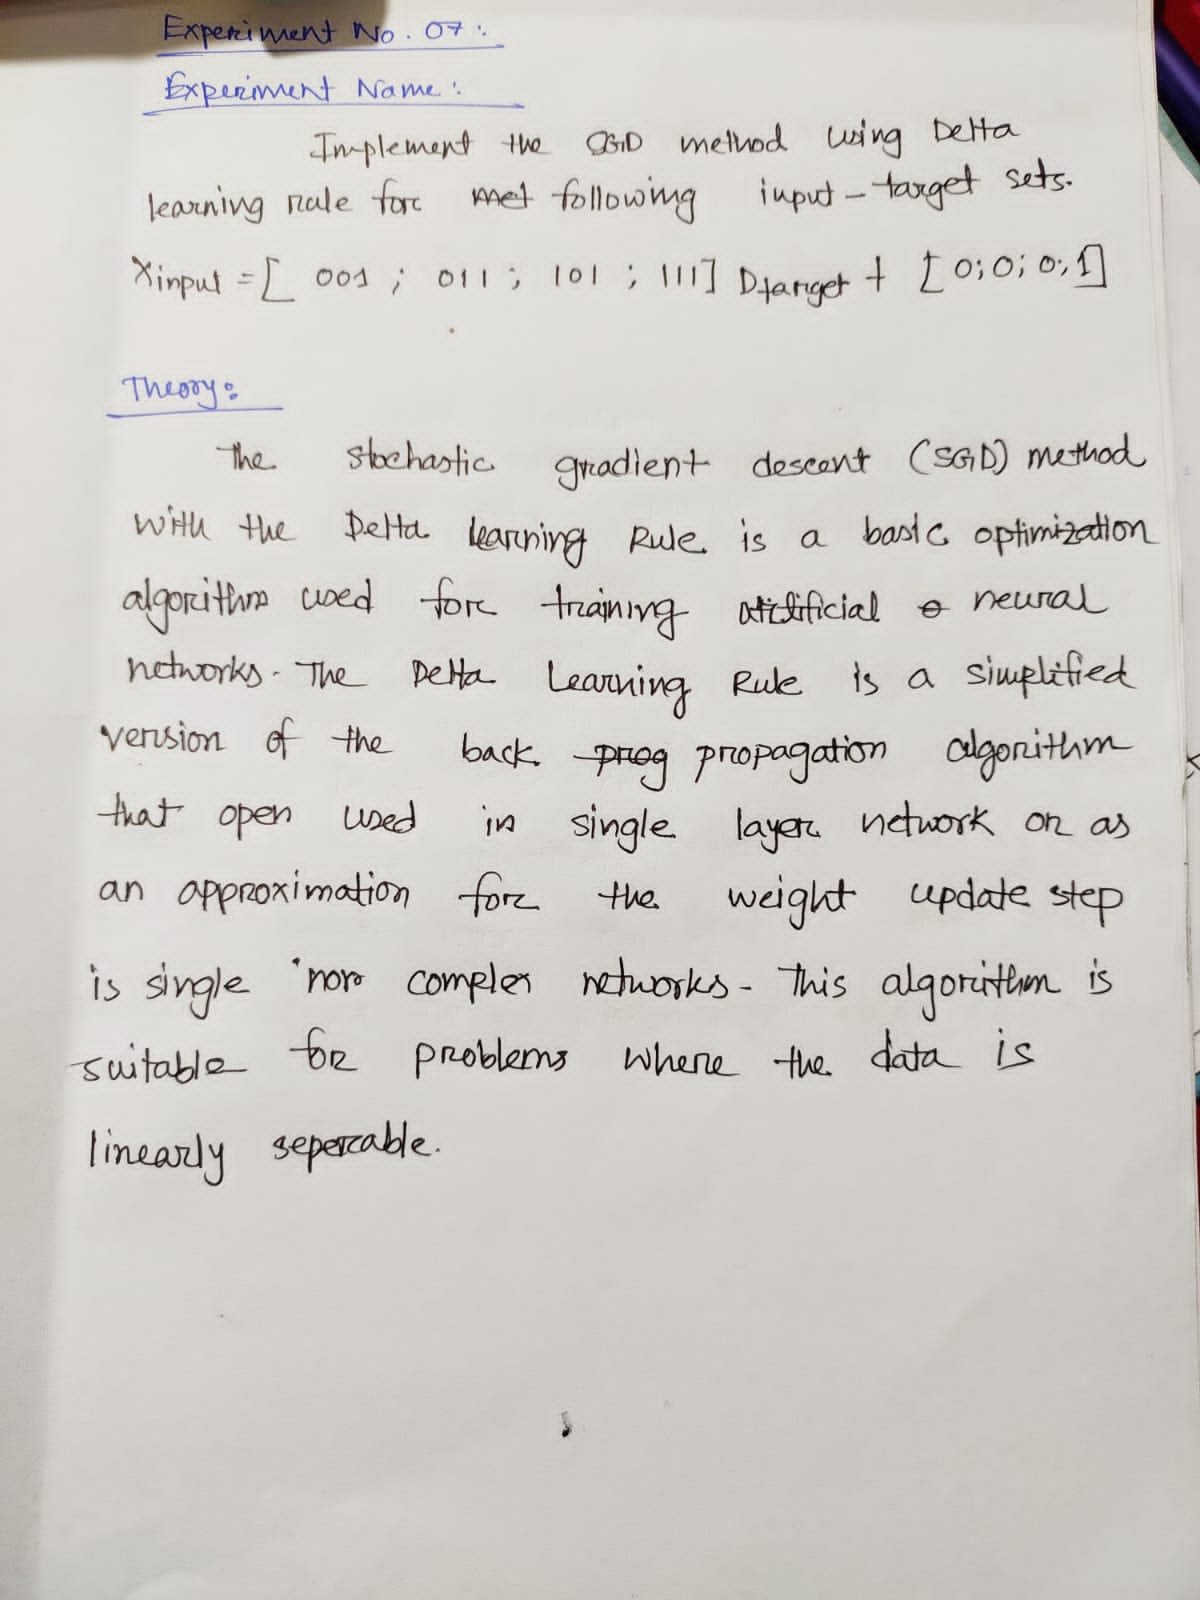 Experiment No. 07:
Experiment Name:
Implement the SGD method using Delta
learning rule for met following input-target sets.
Xinput = [ 001 ; 011 ; 101 ; 111] Dtarget + [0; 0; 0; 1]
Theory:
The stochastic gradient descent (SGD) method
with the Delta Learning Rule is a basic optimization
algorithm used for training artificial neural
networks. The Delta Learning Rule is a simplified
version of the back prog propagation algorithm
that open used in single layer network or as
an approximation for the weight update step
is single non complex networks. This algorithm is
suitable for problems where the data is
linearly seperable.